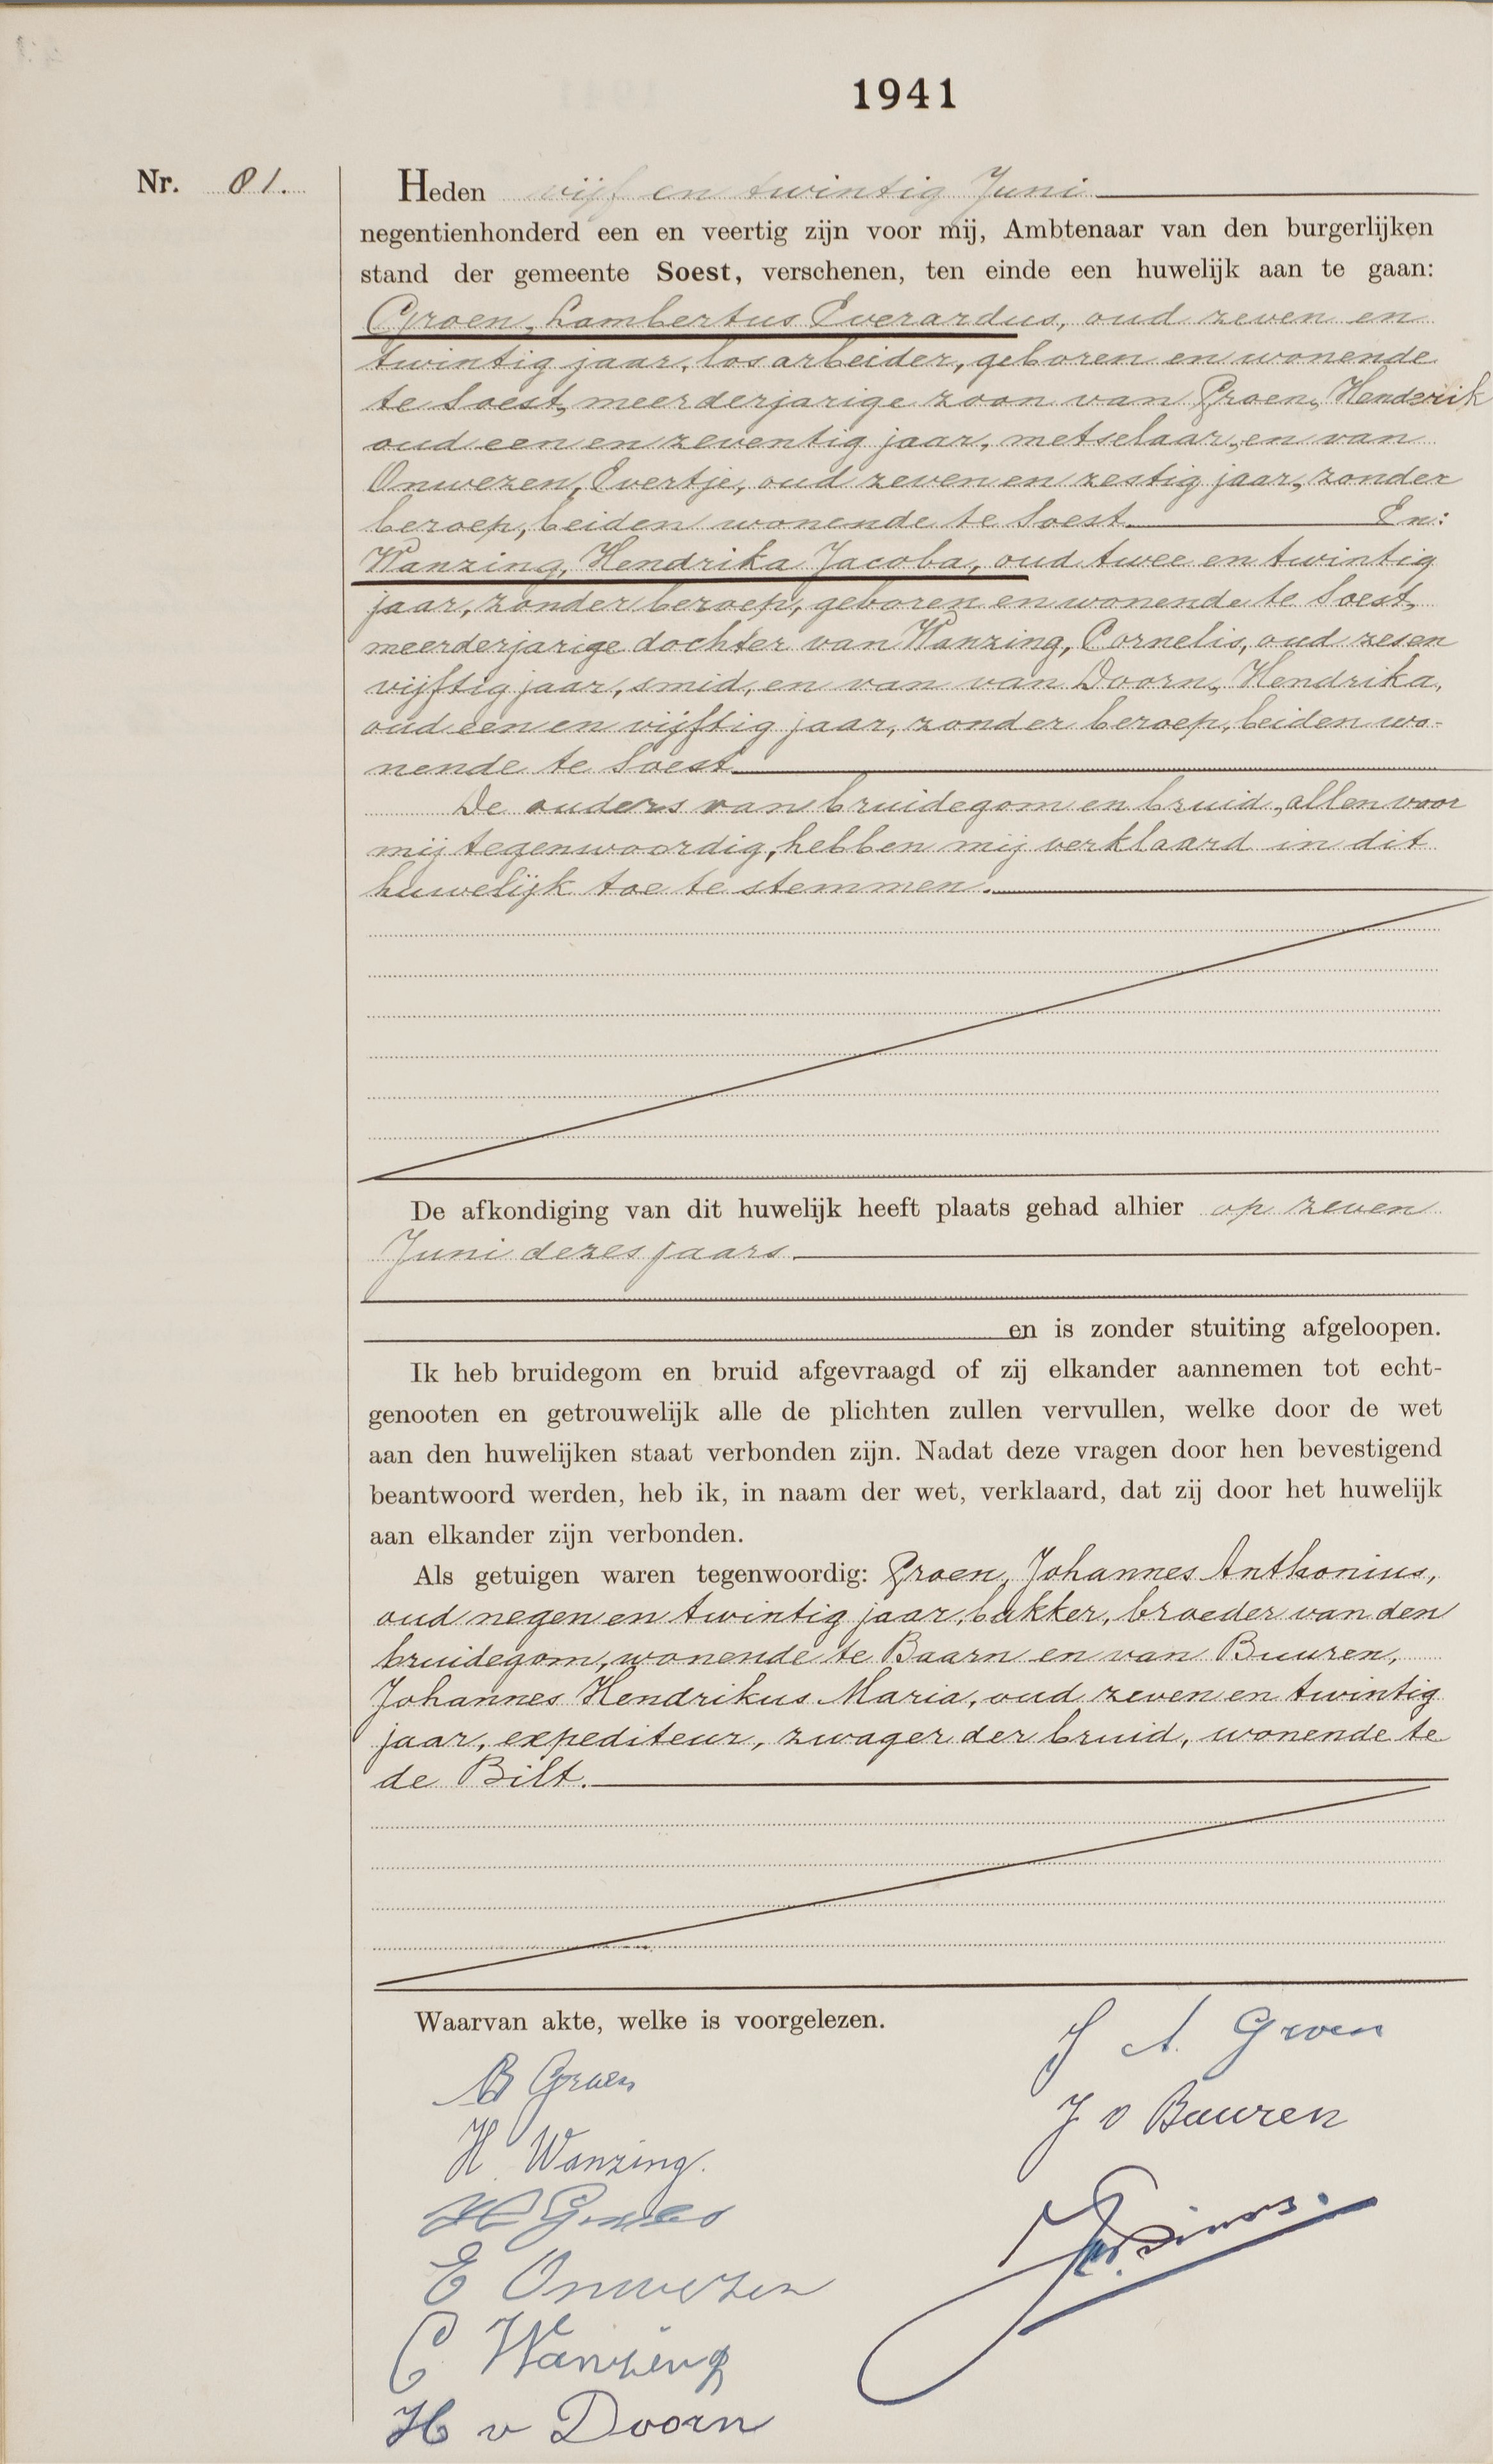 1941
Nr. 81.
Heden vijf en twintig Juni
negentienhonderd een en veertig zijn voor mij, Ambtenaar van den burgerlijken
stand der gemeente Soest, verschenen, ten einde een huwelijk aan te gaan:
Groen, Lambertus Everardus, oud zeven en
twintig jaar, los arbeider, geboren en wonende
te Soest, meerderjarige zoon van Groen, Hendrik
oud een en zeventig jaar, metselaar, en van
Onwezen, Evertje, oud zeven en zestig jaar, zonder
beroep, beiden wonende te Soest. En:
Wanzing, Hendrika Jacoba, oud twee en twintig
jaar, zonder beroep, geboren en wonende te Soest,
meerderjarige dochter van Wanzing, Cornelis, oud zes en
vijftig jaar, smid, en van van Doorn, Hendrika,
oud een en vijftig jaar, zonder beroep, beiden wo-
nende te Soest.
De ouders van bruidegom en bruid, allen voor
mij tegenwoordig, hebben mij verklaard in dit
huwelijk toe te stemmen.
De afkondiging van dit huwelijk heeft plaats gehad alhier op zeven
Juni dezes jaars.
en is zonder stuiting afgeloopen.
Ik heb bruidegom en bruid afgevraagd of zij elkander aannemen tot echt-
genooten en getrouwelijk alle de plichten zullen vervullen, welke door de wet
aan den huwelijken staat verbonden zijn. Nadat deze vragen door hen bevestigend
beantwoord werden, heb ik, in naam der wet, verklaard, dat zij door het huwelijk
aan elkander zijn verbonden.
Als getuigen waren tegenwoordig: Groen, Johannes Anthonius,
oud negen en twintig jaar, bakker, broeder van den
bruidegom, wonende te Baarn en van Buuren,
Johannes Hendrikus Maria, oud zeven en twintig
jaar, expediteur, zwager der bruid, wonende te
de Bilt.
Waarvan akte, welke is voorgelezen.
J A. Groen
B Groen
J v Buuren
H Wanzing.
H Groen
E Onwezen
C Wanzing
H v Doorn